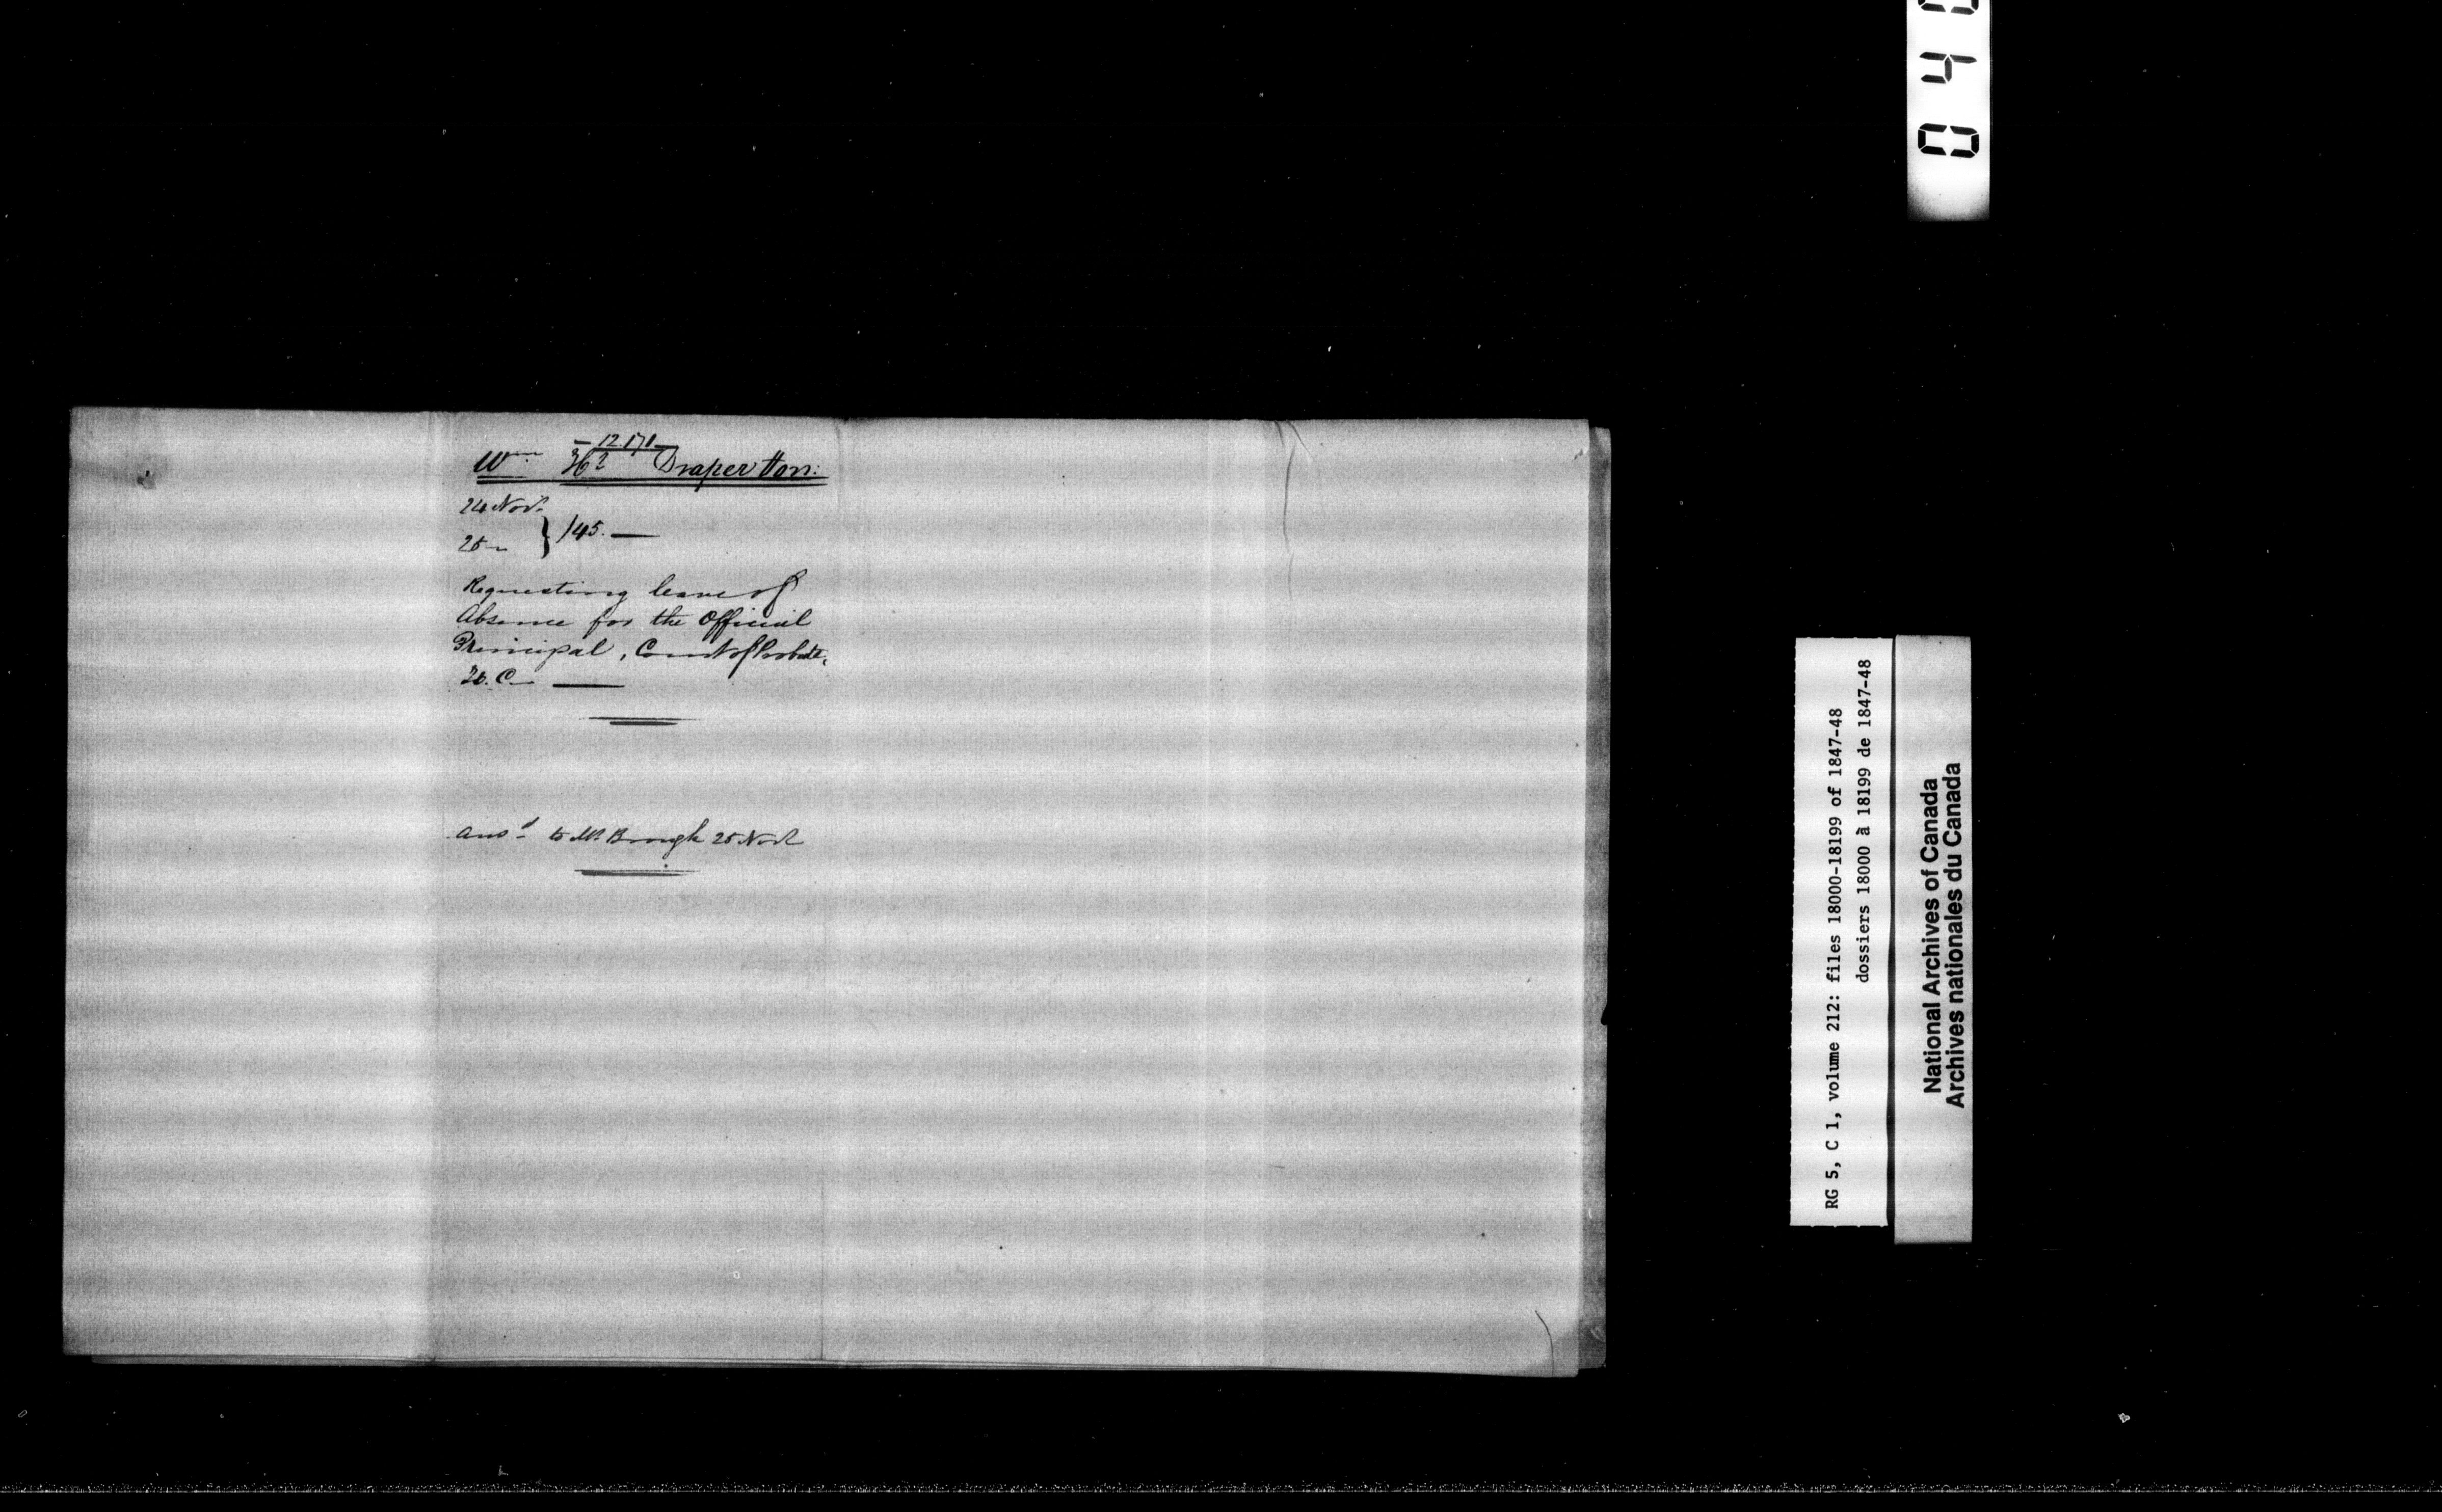 12.171
Wm H? Draper Hon:
24 Novr
25 " } /45. —
Requesting leave of
Absence for the Official
Principal, Court of Probate,
U. C. —
Ansd to Mr Brough 25 Novr
0 4
RG 5, C 1, volume 212: files 18000-18199 of 1847-48
dossiers 18000 à 18199 de 1847-48
National Archives of Canada
Archives nationales du Canada